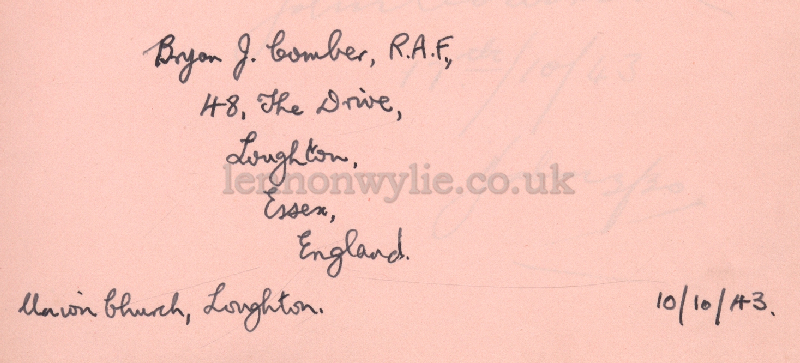 Bryan J. Comber, R.A.F.,
48, The Drive,
Loughton,
lennonwylie.co.uk
Essex,
England.
Union Church, Loughton.
10/10/43.